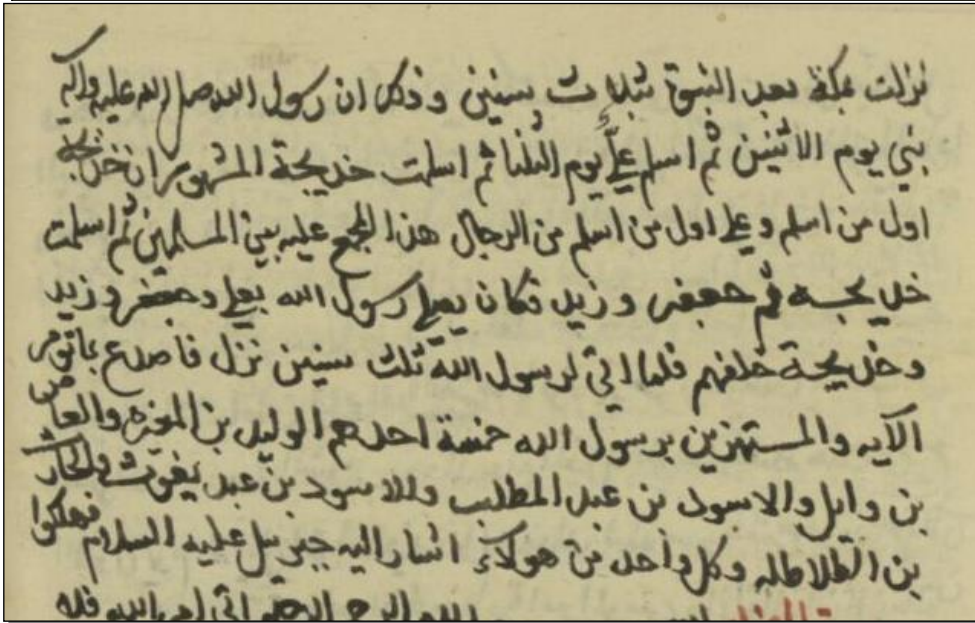 نزلت بمكة بعد النبوة بثلاث سنين وذلك ان رسول الله صلى الله عليه وآله
نبي يوم الاثنين ثم اسلم علي يوم الثلثا ثم اسلمت خديجة المشهور ان خديجة
اول من اسلم وعلي اول من اسلم من الرجال هذا المجمع عليه بين المسلمين ثم اسلمت
خديجه ثم جعفر وزيد فكان يصلي رسول الله بعلي وجعفر وزيد
وخديجة خلفهم فلما اتى لرسول الله ثلث سنين نزل فاصدع بما تؤمر
الآيه والمستهزين برسول الله خمسة احدهم الوليد بن المغيرة والعاص
بن وايل والاسود بن عبد المطلب والاسود بن عبد يغوث والحارث
بن الطلاطله وكل واحد من هولاء اشار اليه جبرييل عليه السلام فهلكوا